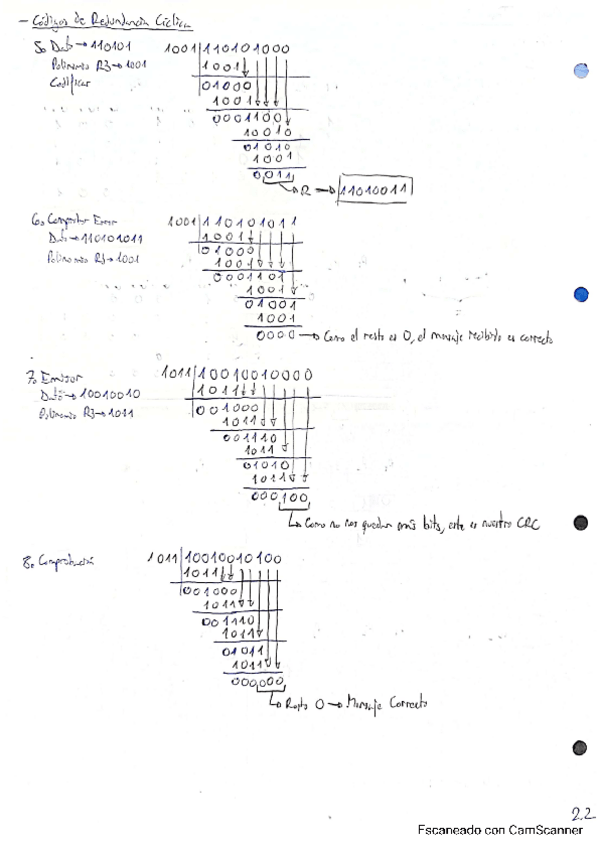 - Códigos de Redundancia Cíclica
5. Dato → 110101
Polinomio R3 → 1001
Codificar
1001|110101000
1001
01000
1001
0001100
10010
01010
1001
0,011
R → 11010011
6. Comprobar Error
Dato → 110101011
Polinomio R3 → 1001
1001|110101011
1001
01000
1001
0001101
1001
01001
1001
0000 → Como el resto es 0, el mensaje recibido es correcto
7. Emisor
Dato → 10010010
Polinomio R3 → 1011
1011|10010010000
1011
001000
1011
001110
1011
01010
1011
000100
Como no nos quedan más bits, este es nuestro CRC
8. Comprobación
1011|10010010100
1011
001000
1011
001110
1011
01011
1011
000,000
Resto 0 → Mensaje Correcto
2.2
Escaneado con CamScanner